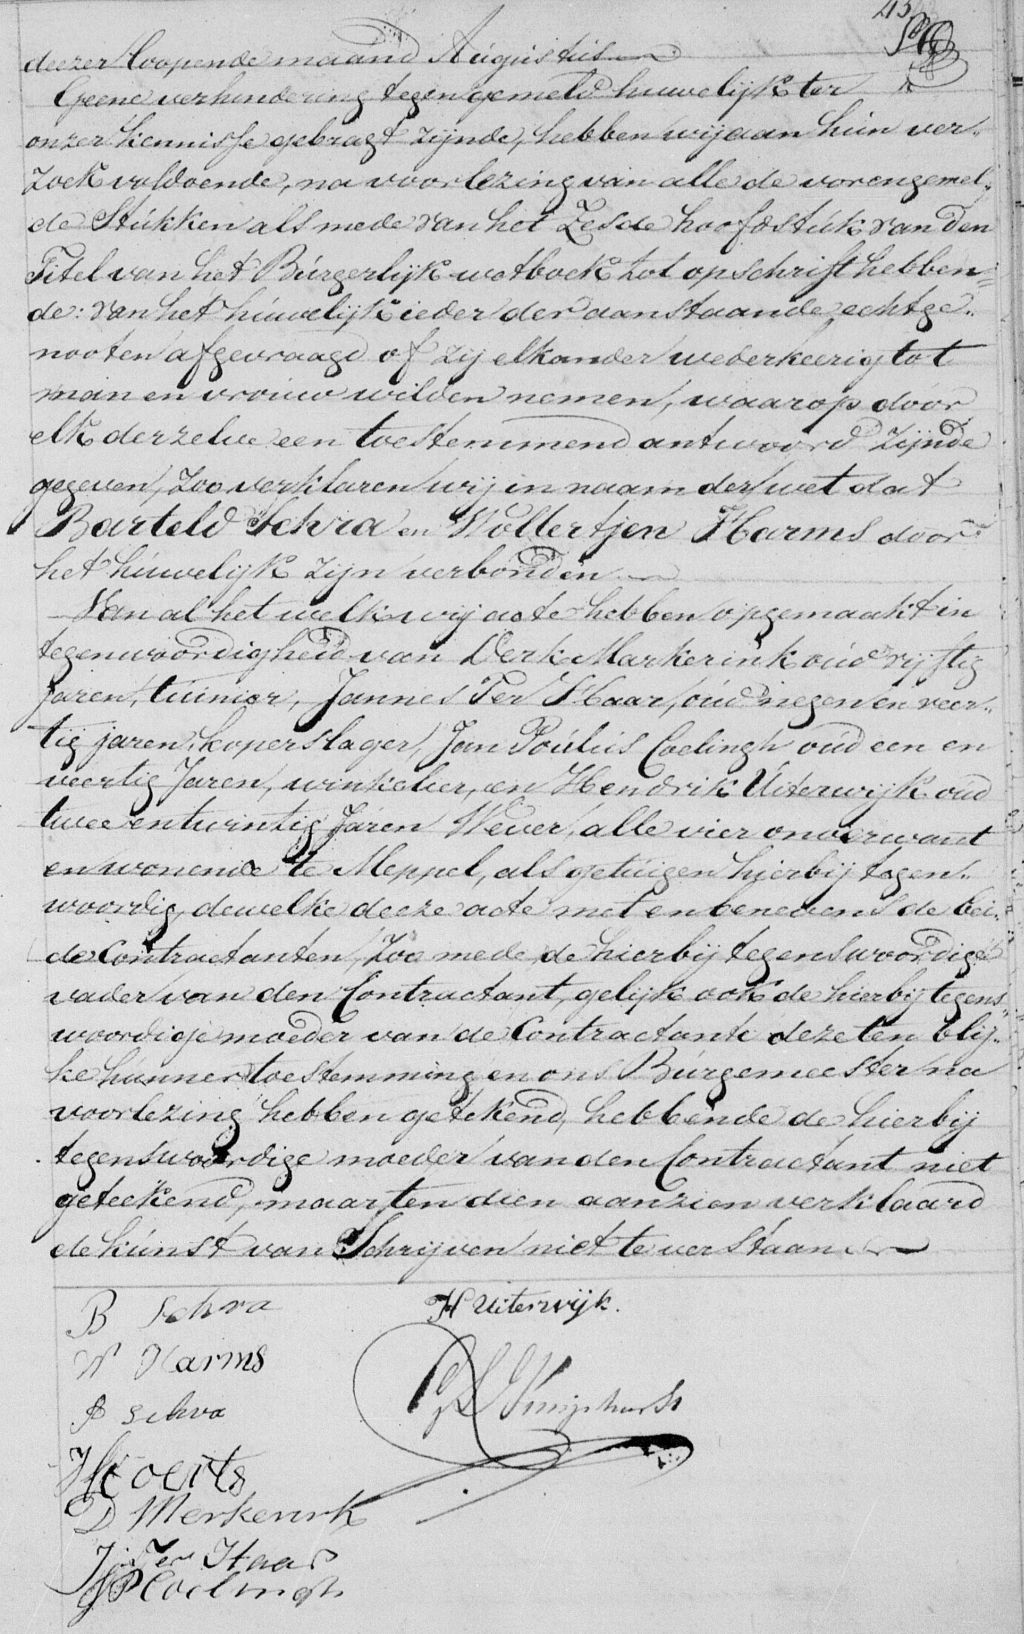 45
deezer loopende maand Augustus
Geene verhindering tegen gemeld huwelijk ter
onzer kennisse gebragt zijnde, hebben wij aan hun ver„
zoek voldoende, na voorlezing van alle de vorengemel„
de Stukken als mede van het Zesde hoofdstuk van den
Titel van het Burgerlijk wetboek tot opschrift hebben„
de: van het huwelijk ieder der aanstaande echtge„
nooten afgevraagd of zij elkander wederkeerig tot
man en vrouw wilden nemen, waarop door
elk derzelve een toestemmend antwoord zijnde
gegeven, zoo verklaren wij in naam der wet dat
Barteld Schra en Wollertjen Harms door
het huwelijk zijn verbonden
Van al het welk wij acte hebben opgemaakt in
tegenwoordigheid van Derk Markerink oud vijftig
jaren, tuinier, Jannes Ter Haar, oud negen en veer„
tig jaren, koperslager, Jan Poulus Coelingh oud een en
veertig Jaren, winkelier, en Hendrik Uiterwijk oud
twee en twintig Jaren Wever, alle vier onverwant
en wonende te Meppel, als getuigen hierbij tegen„
woordig, dewelke deeze acte met en benevens de bei„
de Contractanten, Zoo mede de hierbij tegenswoordige
vader van den Contractant, gelijk ook de hierbij tegens„
woordige moeder van de Contractante deze ten blij„
ke hunner toestemming en ons Burgemeester na
voorlezing hebben getekend, hebbende de hierbij
tegenswoordige moeder van den Contractant niet
geteekend, maar ten dien aanzien verklaard
de kunst van Schrijven niet te verstaan
B Schra
H Uiterwijk.
W Harms
Knijphorst
schra
D Merkenrk
J Ter Haar
JP Coelingh